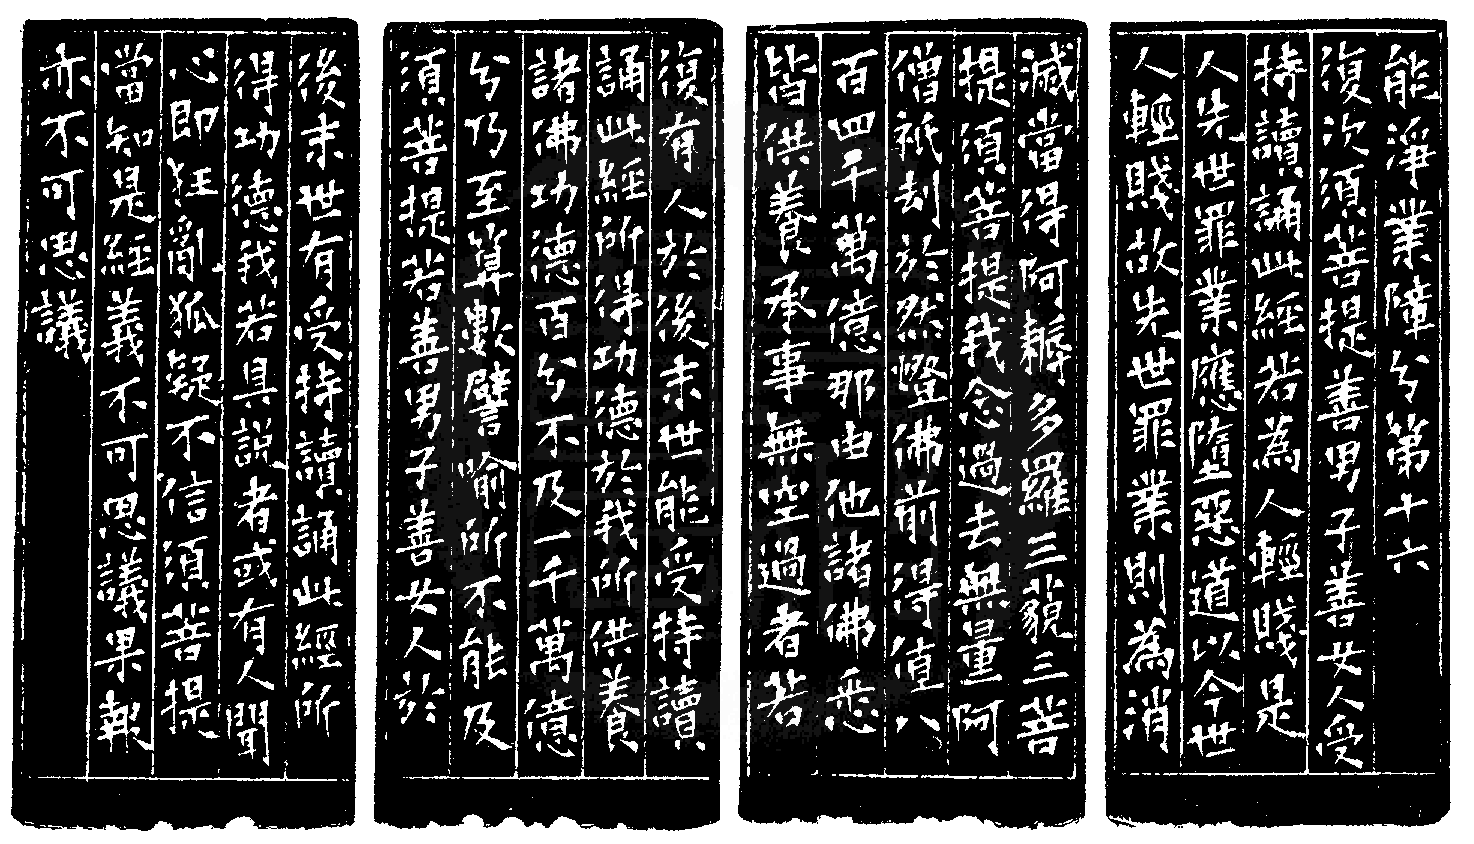 能淨業障分第十六
復次須菩提善男子善女人受
持讀誦此經若為人輕賤是
人先世罪業應墮惡道以今世
人輕賤故先世罪業則為消
滅當得阿耨多羅三藐三菩
提須菩提我念過去無量阿
僧祇劫於然燈佛前得值八
百四千萬億那由他諸佛悉
皆供養承事無空過者若
復有人於後末世能受持讀
誦此經所得功德於我所供養
諸佛功德百分不及一千萬億
分乃至算數譬喻所不能及
須菩提若善男子善女人於
後末世有受持讀誦此經所
得功德我若具說者或有人聞
心即狂亂狐疑不信須菩提
當知是經義不可思議果報
亦不可思議